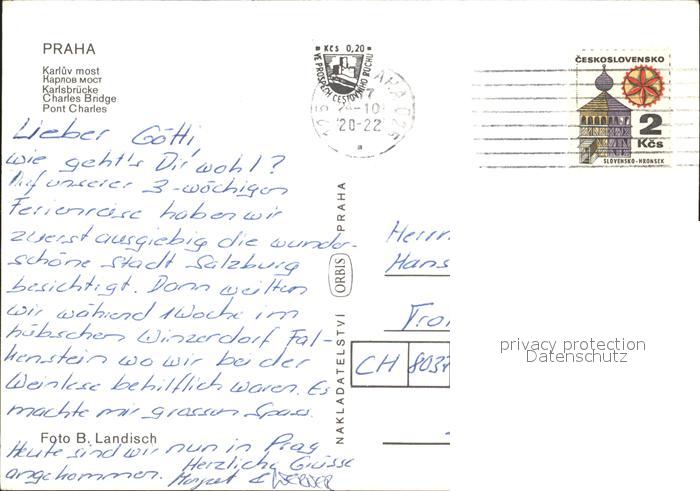 PRAHA
Karlův most
Карлов мост
Karlsbrücke
Charles Bridge
Pont Charles
Lieber Götti,
wie geht's Dir wohl?
Auf unserer 3-wöchigen
Ferienreise haben wir
zuerst ausgiebig die wunder-
schöne Stadt Salzburg
besichtigt. Dann weilten
wir während 1 Woche im
hübschen Winzerdorf Fal-
kenstein wo wir bei der
Weinlese behilflich waren. Es
machte mir grossen Spass.
Foto B. Landisch
Heute sind wir nun in Prag
angekommen. Herzliche Grüsse
Kčs 0,20
VE PROSPĚCH CESTOVNÍHO RUCHU
24.-10
20-22
a
ČESKOSLOVENSKO
2
Kčs
SLOVENSKO-HRONSEK
NAKLADATELSTVÍ ORBIS PRAHA
Herrn
Hans
CH 8037
privacy protection
Datenschutz